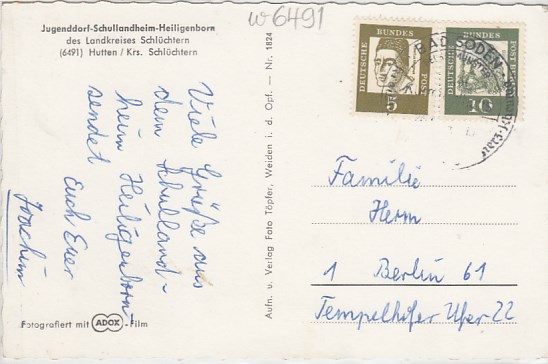 w6491
Jugenddorf-Schullandheim-Heiligenborn
des Landkreises Schlüchtern
(6491) Hutten / Krs. Schlüchtern
Viele Grüße aus
dem Schulland-
heim Heiligenborn
sendet Euch Euer
Joachim
Fotografiert mit ADOX-Film
Aufn. u. Verlag Foto Töpfer, Weiden i. d. Opf. — Nr. 1824
DEUTSCHE BUNDES POST
5
DEUTSCHE BUNDES POST
10
BAD SODEN
Familie
Herm
1 Berlin 61
Tempelhofer Ufer 22